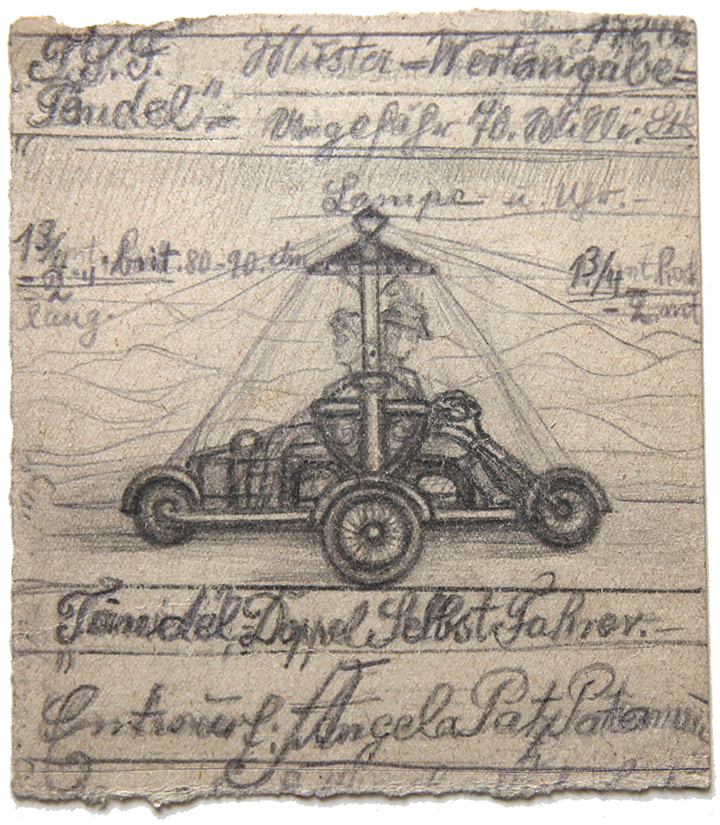 Muster-Wertangabe-
"Tändel"= Ungefähr 70. Mill i. Stk
Lampe u. Uhr.-
1 3/4 mt. breit. 80-90. ctm
- 2 "
lang-
1 3/4 mt hoch
- 2 mt
"Tändel, Doppel Selbst Fahrer.-
Entwurf: Angela Patz